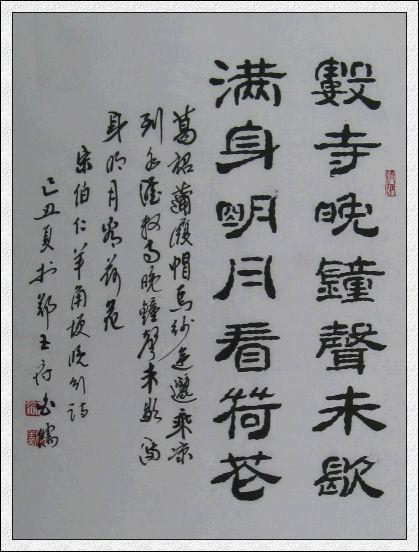 數寺晚鐘聲未歇
满身明月看荷花
葛裙蒲履帽烏紗迤邐乘凉
到水涯數寺晚鐘聲未歇滿
身明月看荷花
宋伯仁羊角埂晚行詩
己丑夏於鄭王府